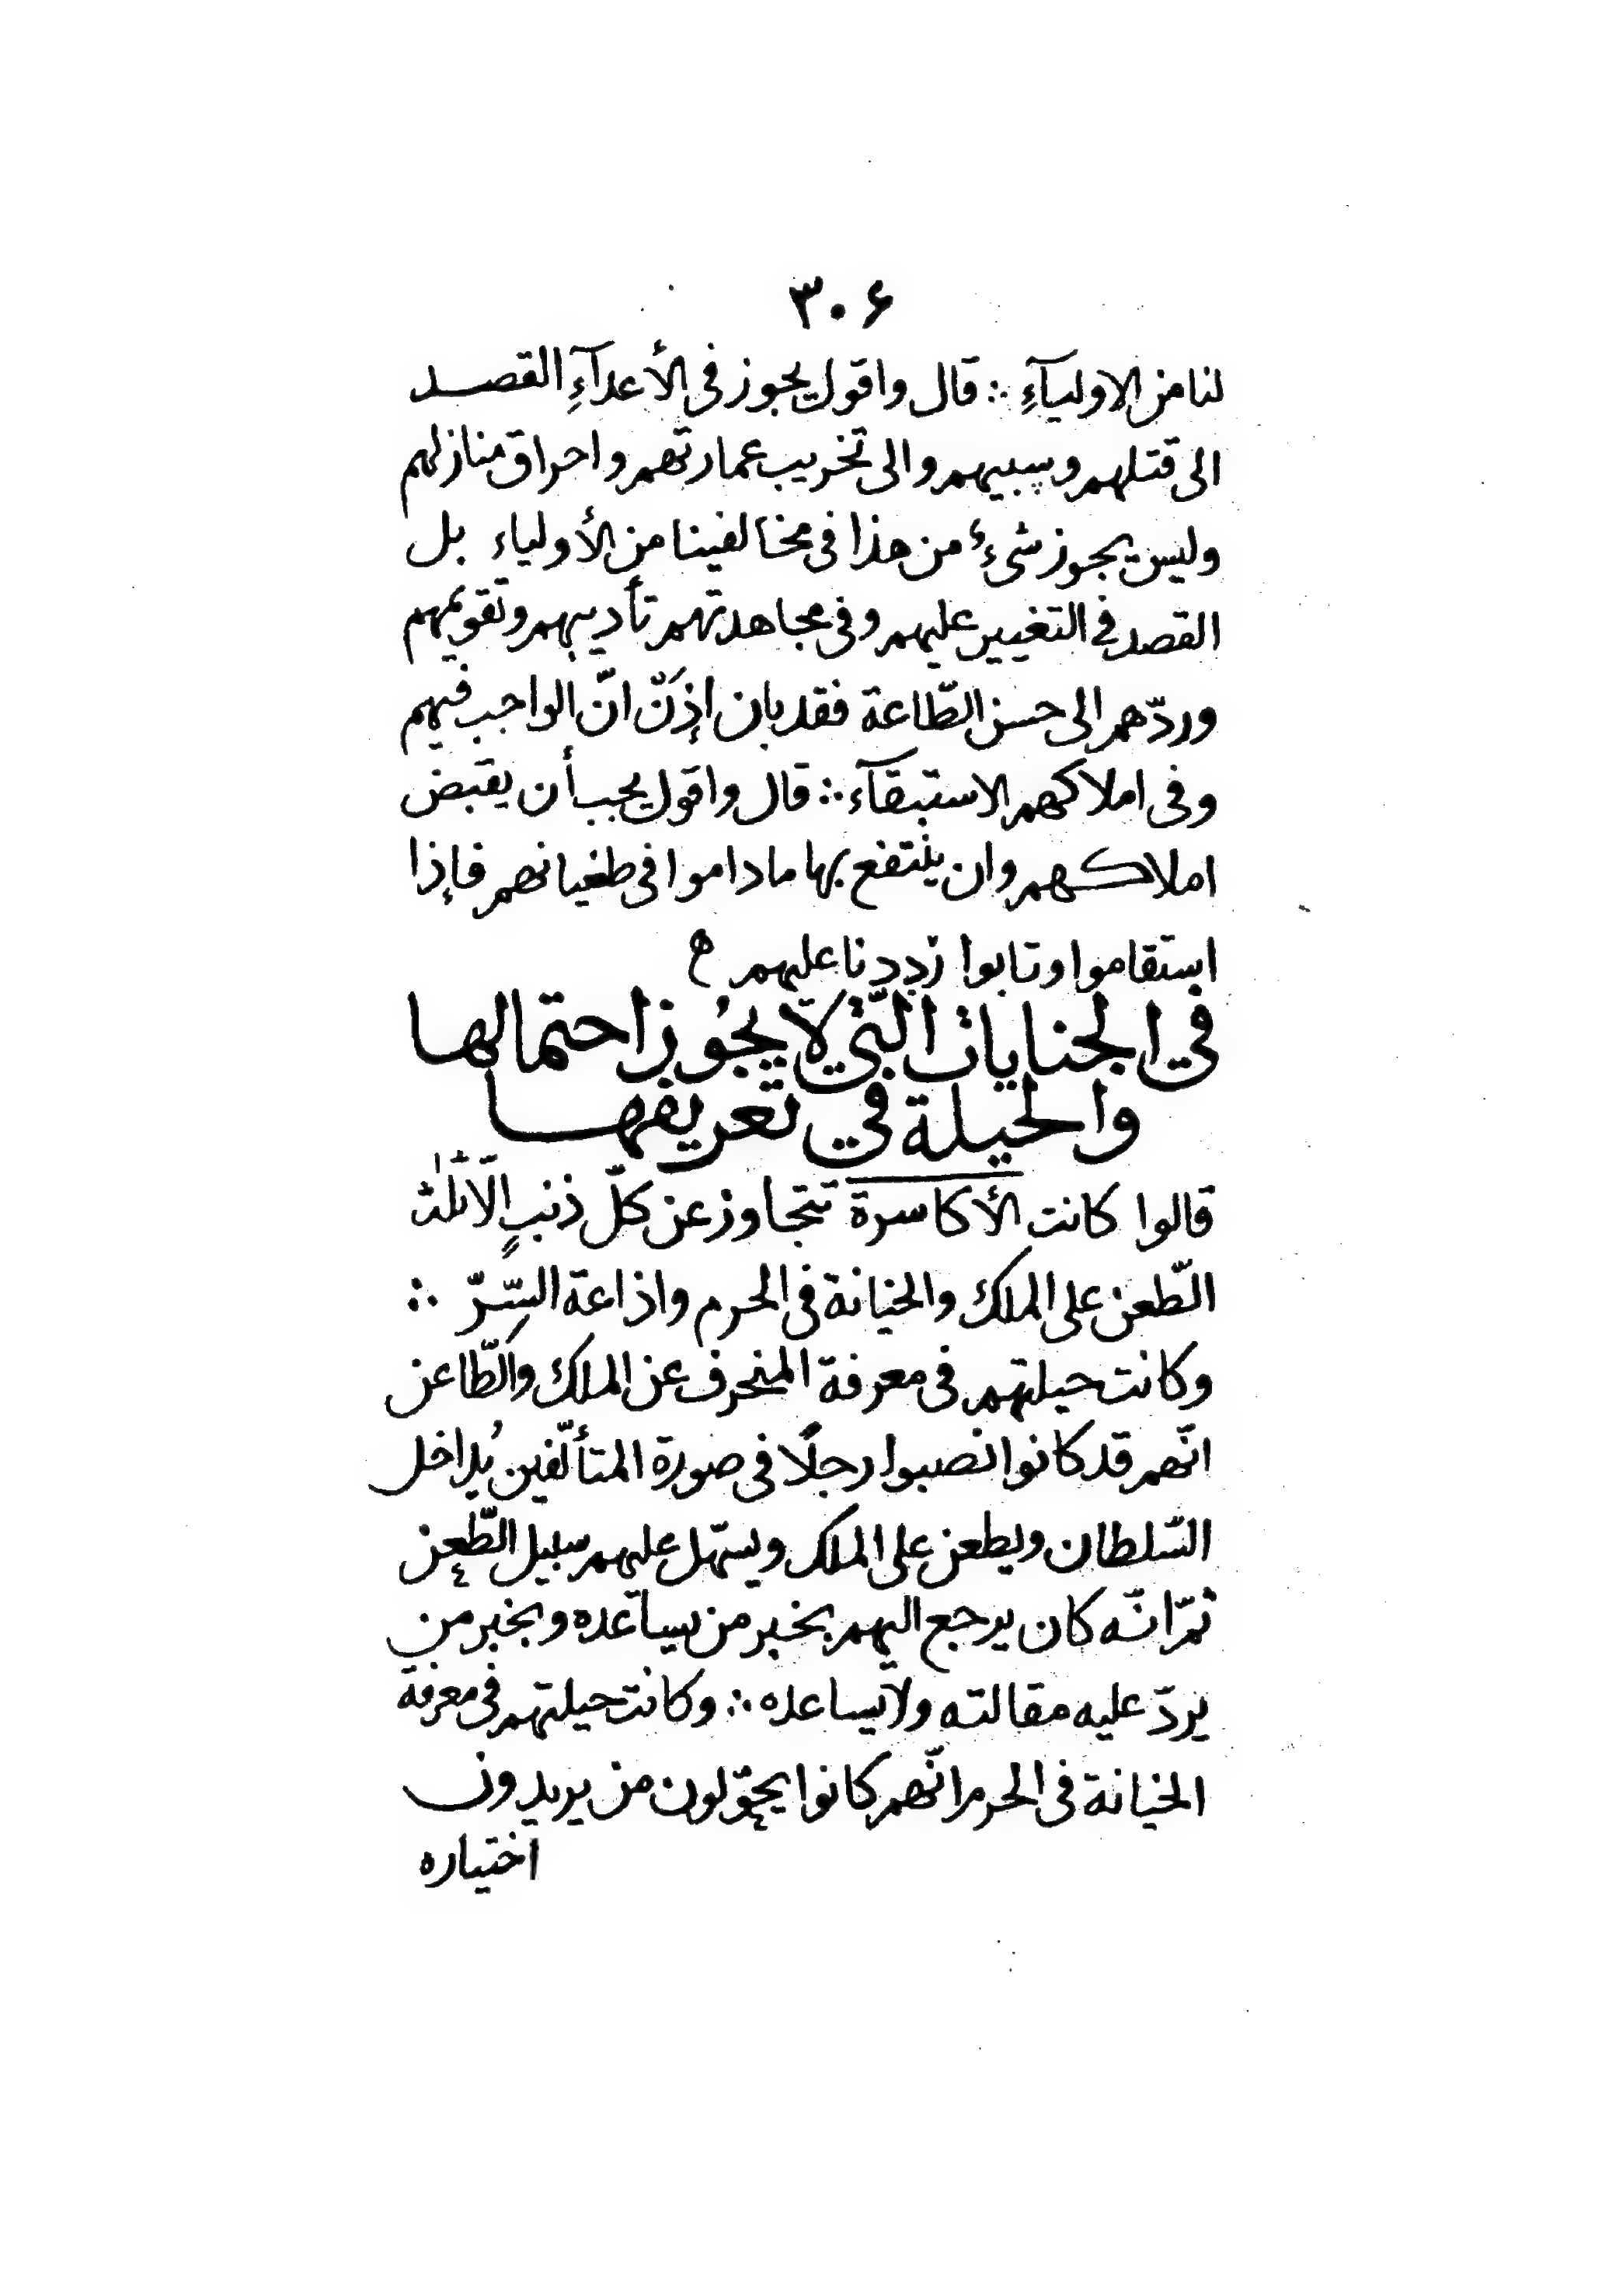 ٣٠۶
لنا من الاوليآءِ ∴ قال واقول يجوز فى الأعدآءِ القصد
الى قتلهم وسبيهم والى تخريب عمارتهم واحراق منازلهم
وليس يجوز شىءٌ من هذا فى مخالفينا من الأولياء بل
القصد فى التغيير عليهم وفى مجاهدتهم تأديبهم وتقويمهم
وردّهم الى حسن الطّاعة فقد بان إذن انّ الواجب فيهم
وفى املاكهم الاستبقآء ∴ قال واقول يجب أن يقبض
املاكهم وان ينتفع بها ماداموا فى طغيانهم فإذا
استقاموا وتابوا رددنا عليهم
في الجنايات الّتي لا يجُوز احتمالها
والحيلة في تعريفها
قالوا كانت الأكاسرة تتجاوز عن كلّ ذنبٍ الّا ثلٰث
الطّعن على الملك والخيانة فى الحرم واذاعة السّرّ ∴
وكانت حيلتهم فى معرفة المنحرف عن الملك والطّاعن
انّهم قد كانوا نصبوا رجلًا فى صورة المتألّفين يُداخل
السّلطان ويطعن على الملك ويسهّل عليهم سبيل الطّعن
ثمّ انّه كان يرجع اليهم بخبر من يساعده وبخبر من
يردّ عليه مقالته ولا يساعده ∴ وكانت حيلتهم فى معرفة
الخيانة فى الحرم انّهم كانوا يحوّلون من يريدون
اختياره